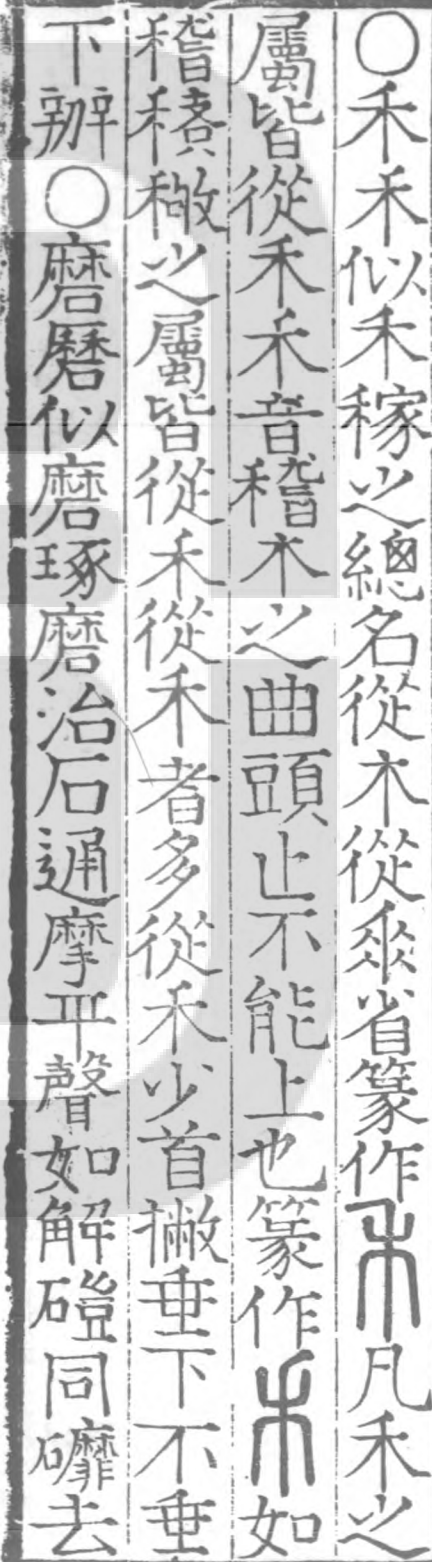 ○禾𥝌似禾稼之總名從木從𠂹省篆作𥝌凡禾之
屬皆從禾𥝌音稽木之曲頭止不能上也篆作𥝌如
稽𥡴𥠻之屬皆從𥝌從禾者多從𥝌少首撇垂下不垂
下辦○磨磿似磨琢磨治石通摩平聲如解磑同䃺去